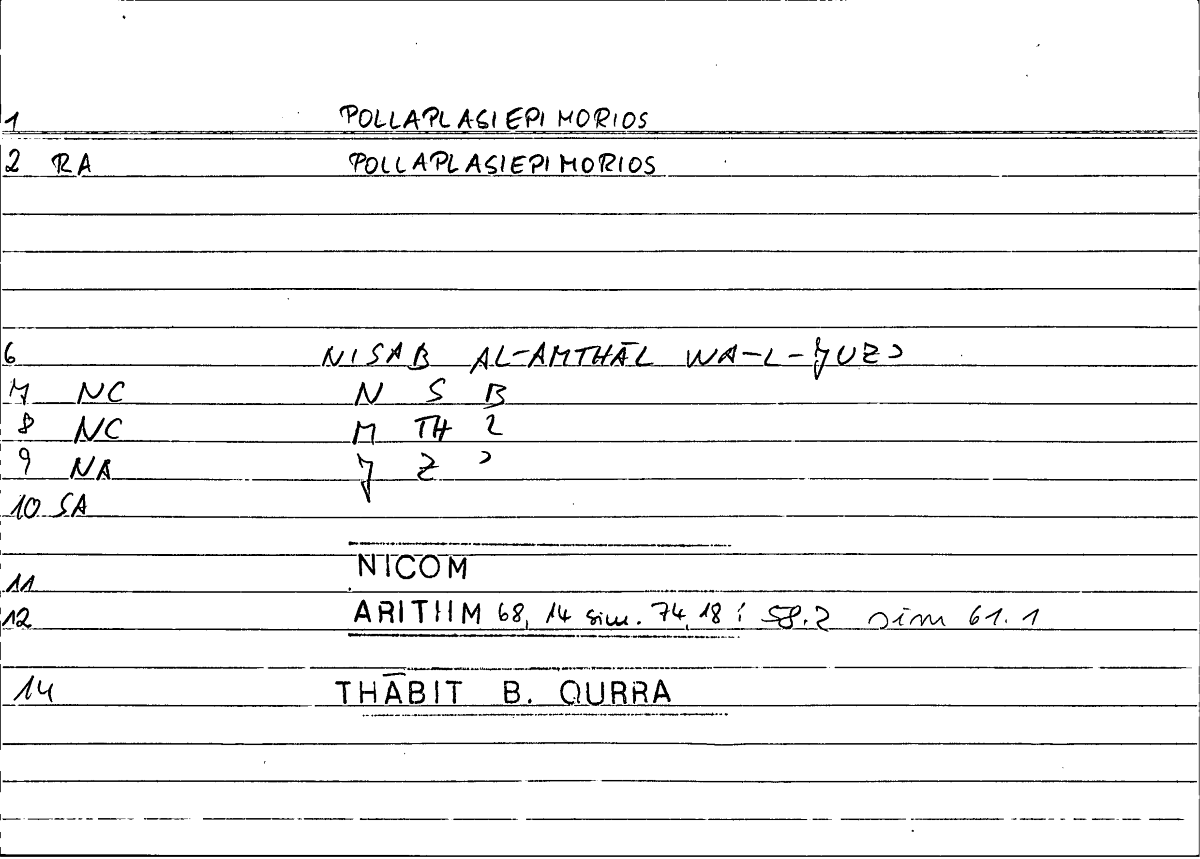 1 POLLAPLASIEPIMORIOS
2 RA POLLAPLASIEPIMORIOS
6 NISAB AL-AMTHĀL WA-L-JUZ ɔ
7 NC N S B
8 NC M TH 2
9 NA J Z ɔ
10 SA
NICOM
11
12 ARITHM 68, 14 sim. 74, 18 ; 58.2 sim 61.1
14 THĀBIT B. QURRA